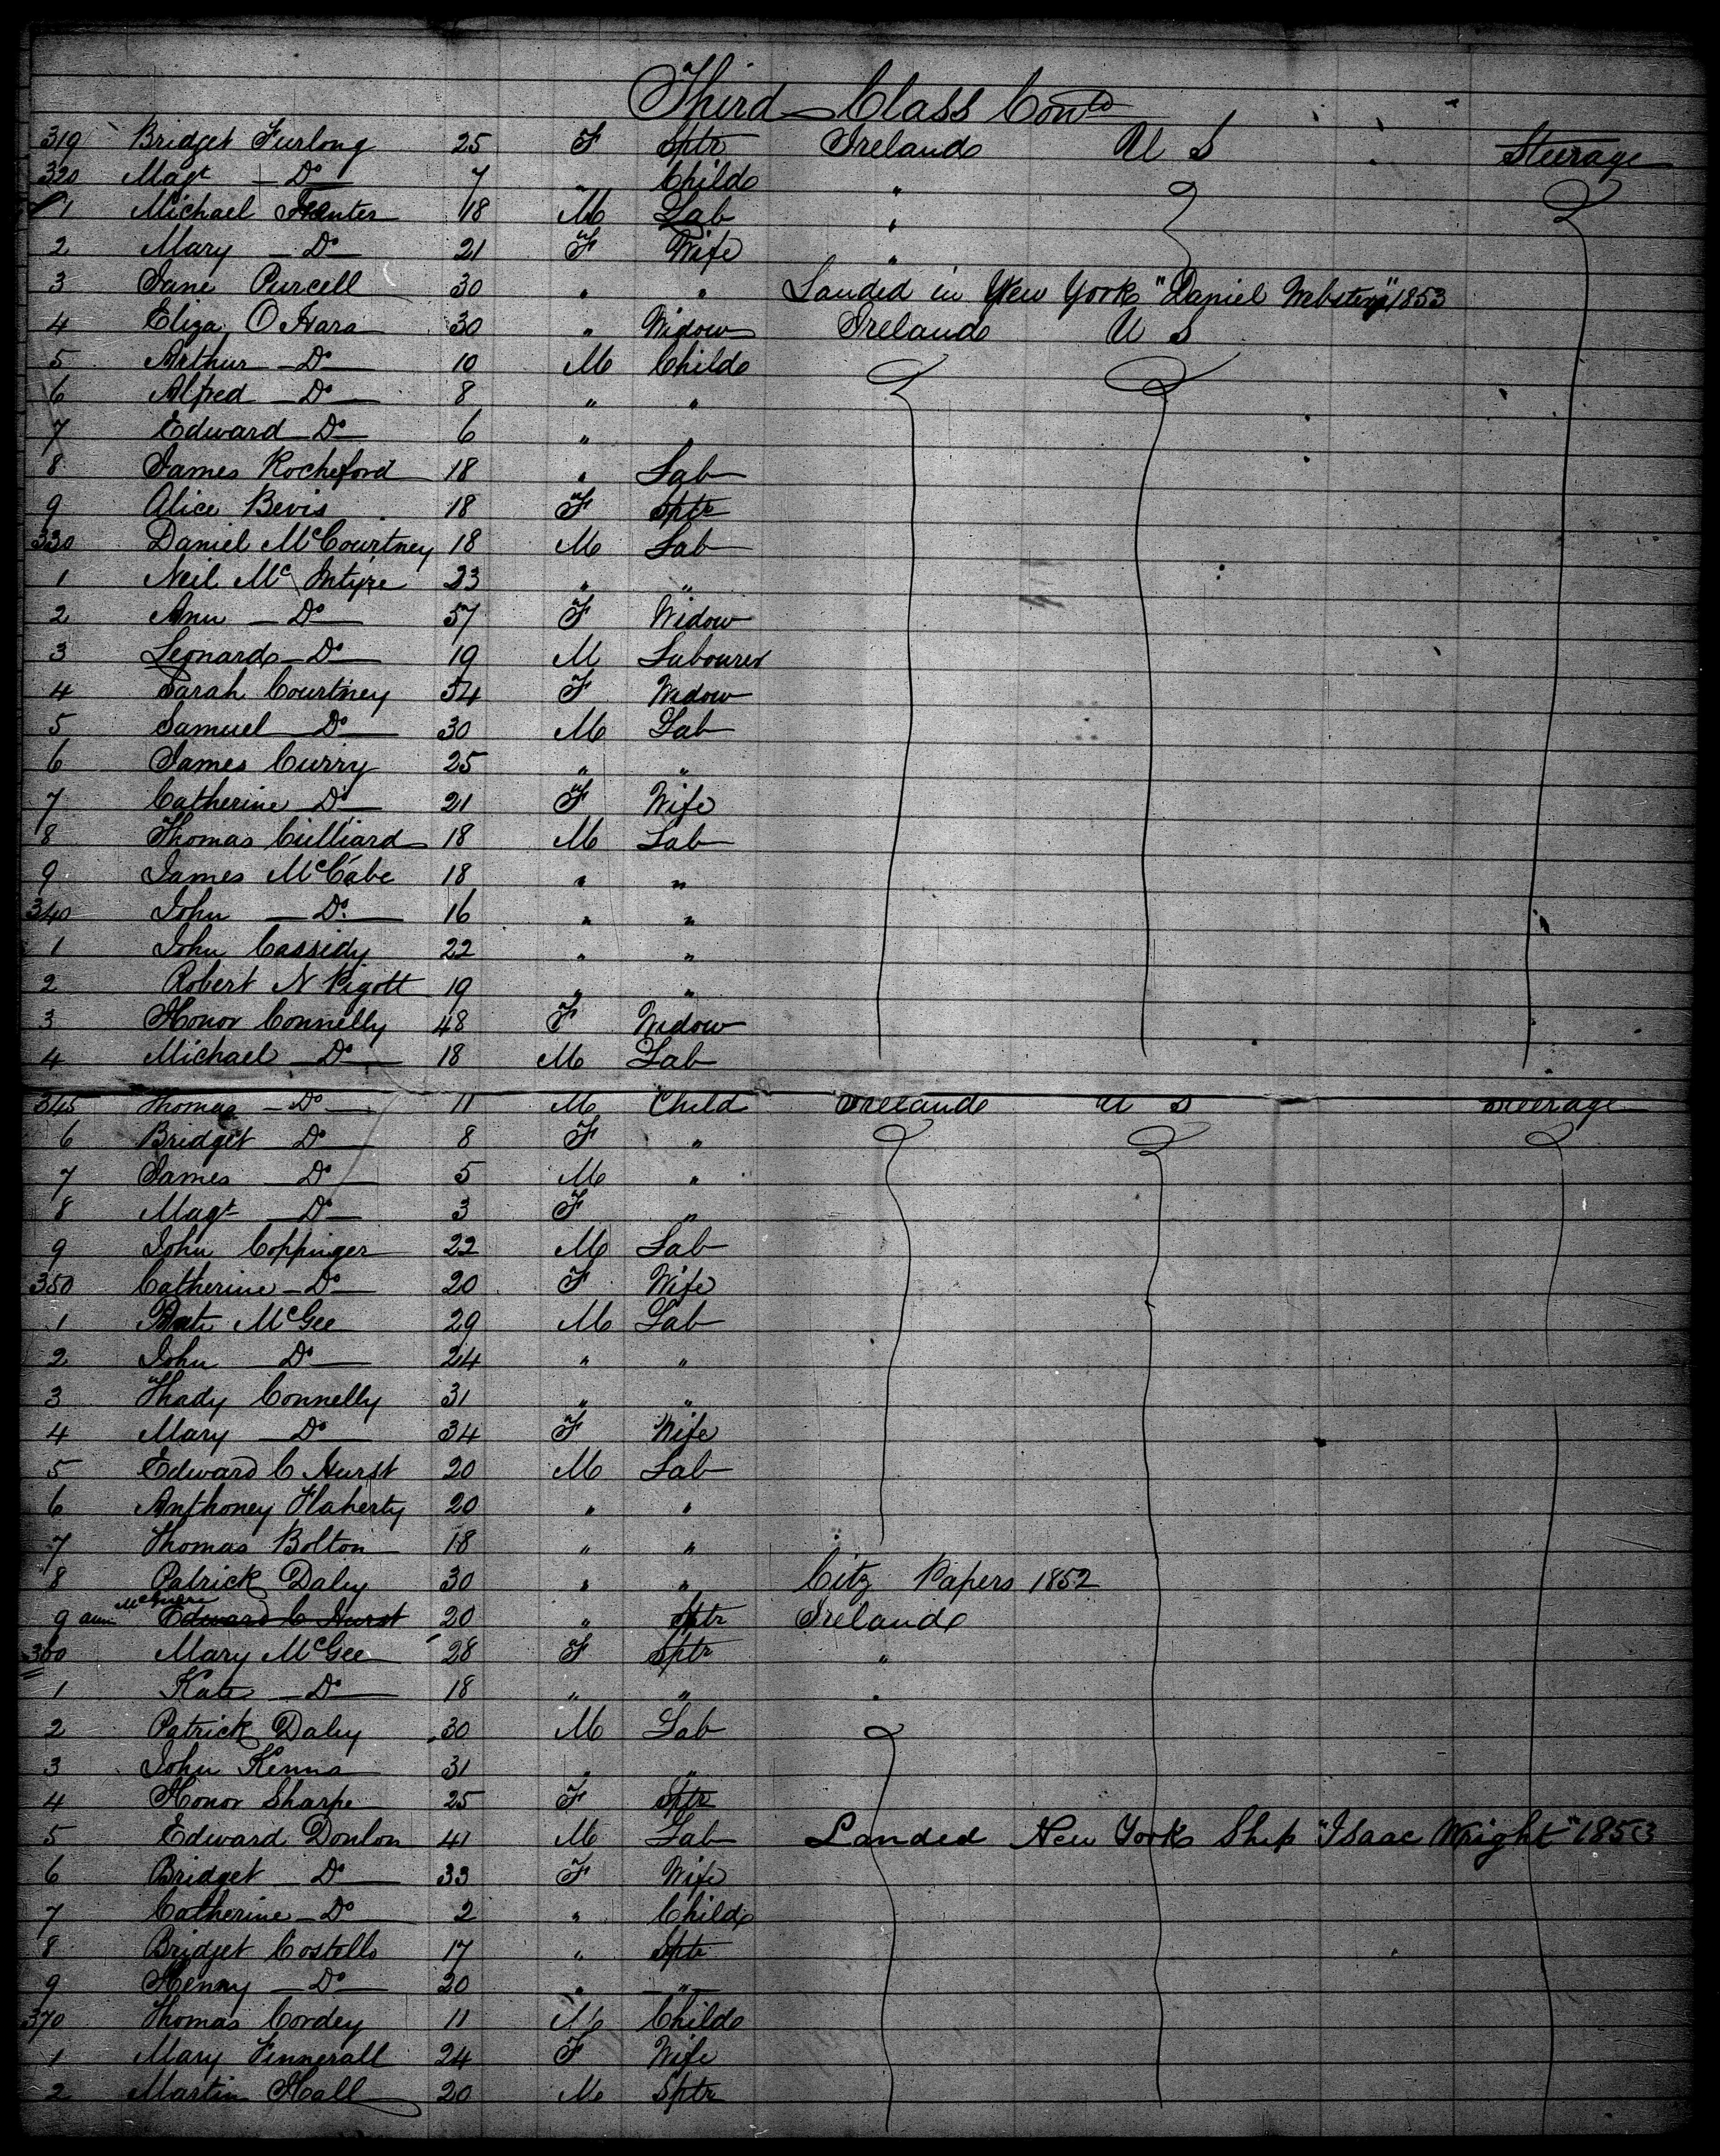 Third Class Contd
319 Bridget Furlong 25 F Sptr Ireland U S Steerage
320 Magt Do 7 " Child "
1 Michael 18 M Lab "
2 Mary Do 21 F Wife "
3 Jane Purcell 30 " " Landed in New York "Daniel Webster" 1853
4 Eliza O Hara 30 " Widow Ireland U S
5 Arthur Do 10 M Child
6 Alfred Do 8 " "
7 Edward Do 6 "
8 James Rocheford 18 " Lab
9 Alice Bevis 18 F Sptr
330 Daniel McCourtney 18 M Lab
1 Neil Mc Intyre 23 " "
2 Ann Do 57 F Widow
3 Leonard Do 19 M Labourer
4 Sarah Courtney 54 F Widow
5 Samuel Do 30 M Lab
6 James Curry 25 " "
7 Catherine Do 21 F Wife
8 Thomas Cuilliard 18 M Lab
9 James McCabe 18 " "
340 John Do 16 " "
1 John Cassidy 22 " "
2 Robert N Pigott 19 " "
3 Honor Connelly 48 F Widow
4 Michael Do 18 M Lab
345 Thomas Do 11 M Child Ireland U S Steerage
6 Bridget Do 8 F "
7 James Do 5 M "
8 Magt Do 3 F "
9 John Coppinger 22 M Lab
350 Catherine Do 20 F Wife
1 McGee 29 M Lab
2 John Do 24 " "
3 Thady Connelly 31 " "
4 Mary Do 34 F Wife
5 Edward C Hurst 20 M Lab
6 Anthoney Flaherty 20 " "
7 Thomas Bolton 18 " "
8 Patrick Daley 30 " " Citz Papers 1852
9 Edward C Hurst 20 " Sptr Ireland
360 Mary McGee 28 F Sptr "
1 Kate Do 18 " " "
2 Patrick Daley 30 M Lab
3 John Kenna 31 " "
4 Honor Sharpe 25 F Sptr
5 Edward Donlon 41 M Lab Landed New York Ship "Isaac Wright" 1853
6 Bridget Do 33 F Wife
7 Catherine Do 2 " Child
8 Bridget Costello 17 " Sptr
9 Henny Do 20 " "
370 Thomas Cordey 11 M Child
1 Mary Finnerall 24 F Wife
2 Martin Hall 20 M Sptr